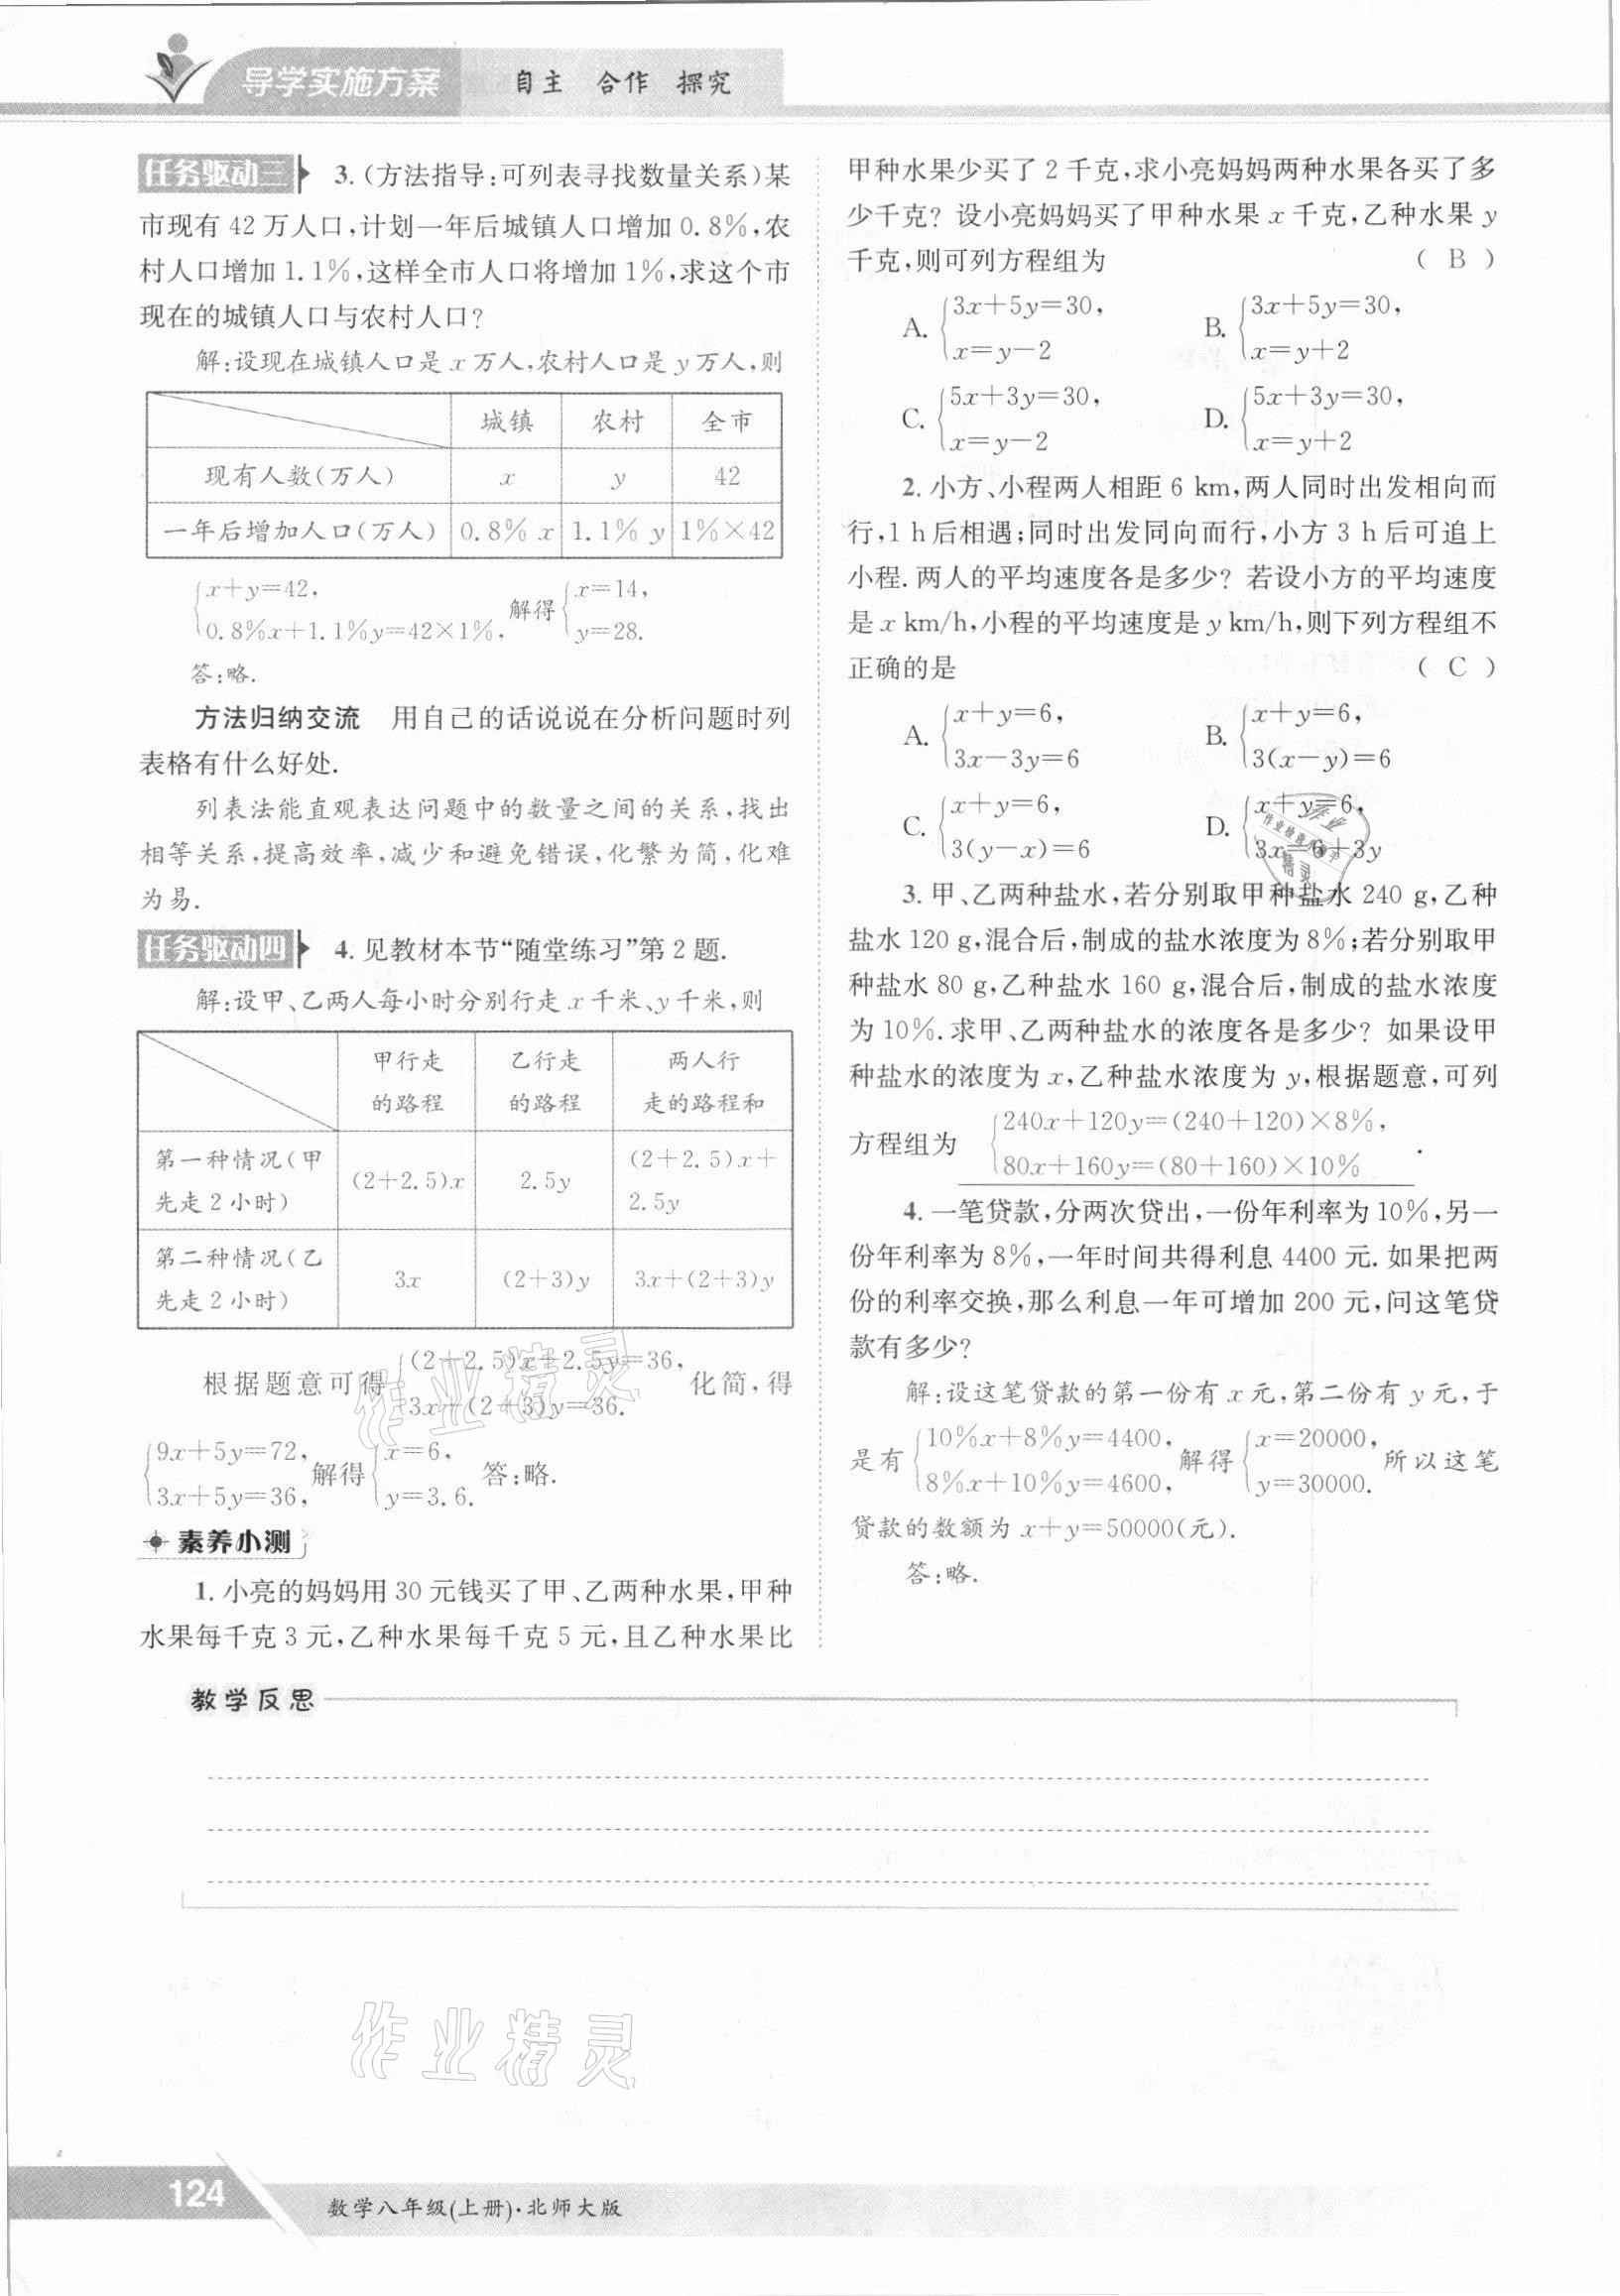 导学实施方案 自主 合作 探究
任务驱动三 3.(方法指导:可列表寻找数量关系)某
市现有 42 万人口,计划一年后城镇人口增加 0.8%,农
村人口增加 1.1%,这样全市人口将增加 1%,求这个市
现在的城镇人口与农村人口?
解:设现在城镇人口是 x 万人,农村人口是 y 万人,则
城镇 农村 全市
现有人数(万人) x y 42
一年后增加人口(万人) 0.8% x 1.1% y 1%×42
{x+y=42,
0.8%x+1.1%y=42×1%, 解得 {x=14,
y=28.
答:略.
方法归纳交流 用自己的话说说在分析问题时列
表格有什么好处.
列表法能直观表达问题中的数量之间的关系,找出
相等关系,提高效率,减少和避免错误,化繁为简,化难
为易.
任务驱动四 4. 见教材本节“随堂练习”第 2 题.
解:设甲、乙两人每小时分别行走 x 千米、y 千米,则
甲行走 乙行走 两人行
的路程 的路程 走的路程和
第一种情况(甲
先走 2 小时) (2+2.5)x 2.5y (2+2.5)x+
2.5y
第二种情况(乙
先走 2 小时) 3x (2+3)y 3x+(2+3)y
根据题意可得 {(2+2.5)x+2.5y=36,
3x+(2+3)y=36. 化简,得
{9x+5y=72,
3x+5y=36, 解得 {x=6,
y=3.6. 答:略.
素养小测
1. 小亮的妈妈用 30 元钱买了甲、乙两种水果,甲种
水果每千克 3 元,乙种水果每千克 5 元,且乙种水果比
甲种水果少买了 2 千克,求小亮妈妈两种水果各买了多
少千克? 设小亮妈妈买了甲种水果 x 千克,乙种水果 y
千克,则可列方程组为 ( B )
A. {3x+5y=30,
x=y-2
B. {3x+5y=30,
x=y+2
C. {5x+3y=30,
x=y-2
D. {5x+3y=30,
x=y+2
2. 小方、小程两人相距 6 km,两人同时出发相向而
行,1 h 后相遇;同时出发同向而行,小方 3 h 后可追上
小程. 两人的平均速度各是多少? 若设小方的平均速度
是 x km/h,小程的平均速度是 y km/h,则下列方程组不
正确的是 ( C )
A. {x+y=6,
3x-3y=6
B. {x+y=6,
3(x-y)=6
C. {x+y=6,
3(y-x)=6
D. {x+y=6,
3x=6+3y
3. 甲、乙两种盐水,若分别取甲种盐水 240 g,乙种
盐水 120 g,混合后,制成的盐水浓度为 8%;若分别取甲
种盐水 80 g,乙种盐水 160 g,混合后,制成的盐水浓度
为 10%. 求甲、乙两种盐水的浓度各是多少? 如果设甲
种盐水的浓度为 x,乙种盐水浓度为 y,根据题意,可列
方程组为 {240x+120y=(240+120)×8%,
80x+160y=(80+160)×10% .
4. 一笔贷款,分两次贷出,一份年利率为 10%,另一
份年利率为 8%,一年时间共得利息 4400 元. 如果把两
份的利率交换,那么利息一年可增加 200 元,问这笔贷
款有多少?
解:设这笔贷款的第一份有 x 元,第二份有 y 元,于
是有 {10%x+8%y=4400,
8%x+10%y=4600, 解得 {x=20000,
y=30000. 所以这笔
贷款的数额为 x+y=50000(元).
答:略.
教学反思
作业精灵
作业精灵
124
数学八年级(上册)·北师大版